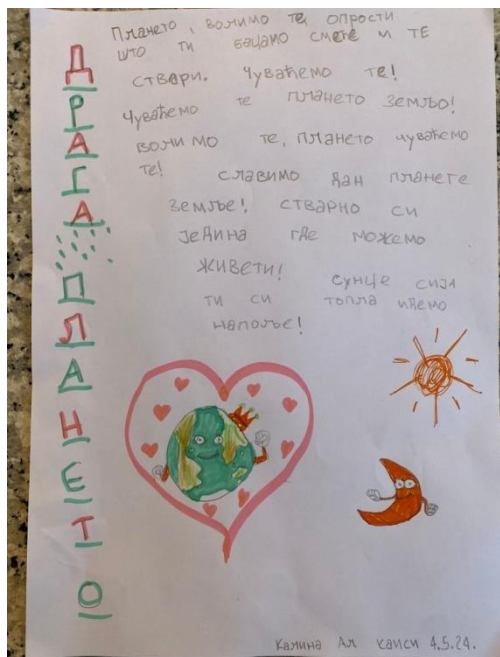 ДРАГА ПЛАНЕТО
Плането, волимо те, опрости
што ти бацамо смеће и те
ствари. Чуваћемо те!
Чуваћемо те плането Земљо!
волимо те, плането чуваћемо
те! славимо дан планете
земље! стварно си
једина где можемо
живети! сунце сија
ти си топла идемо
напоље!
Калина Ал каиси 4.5.24.